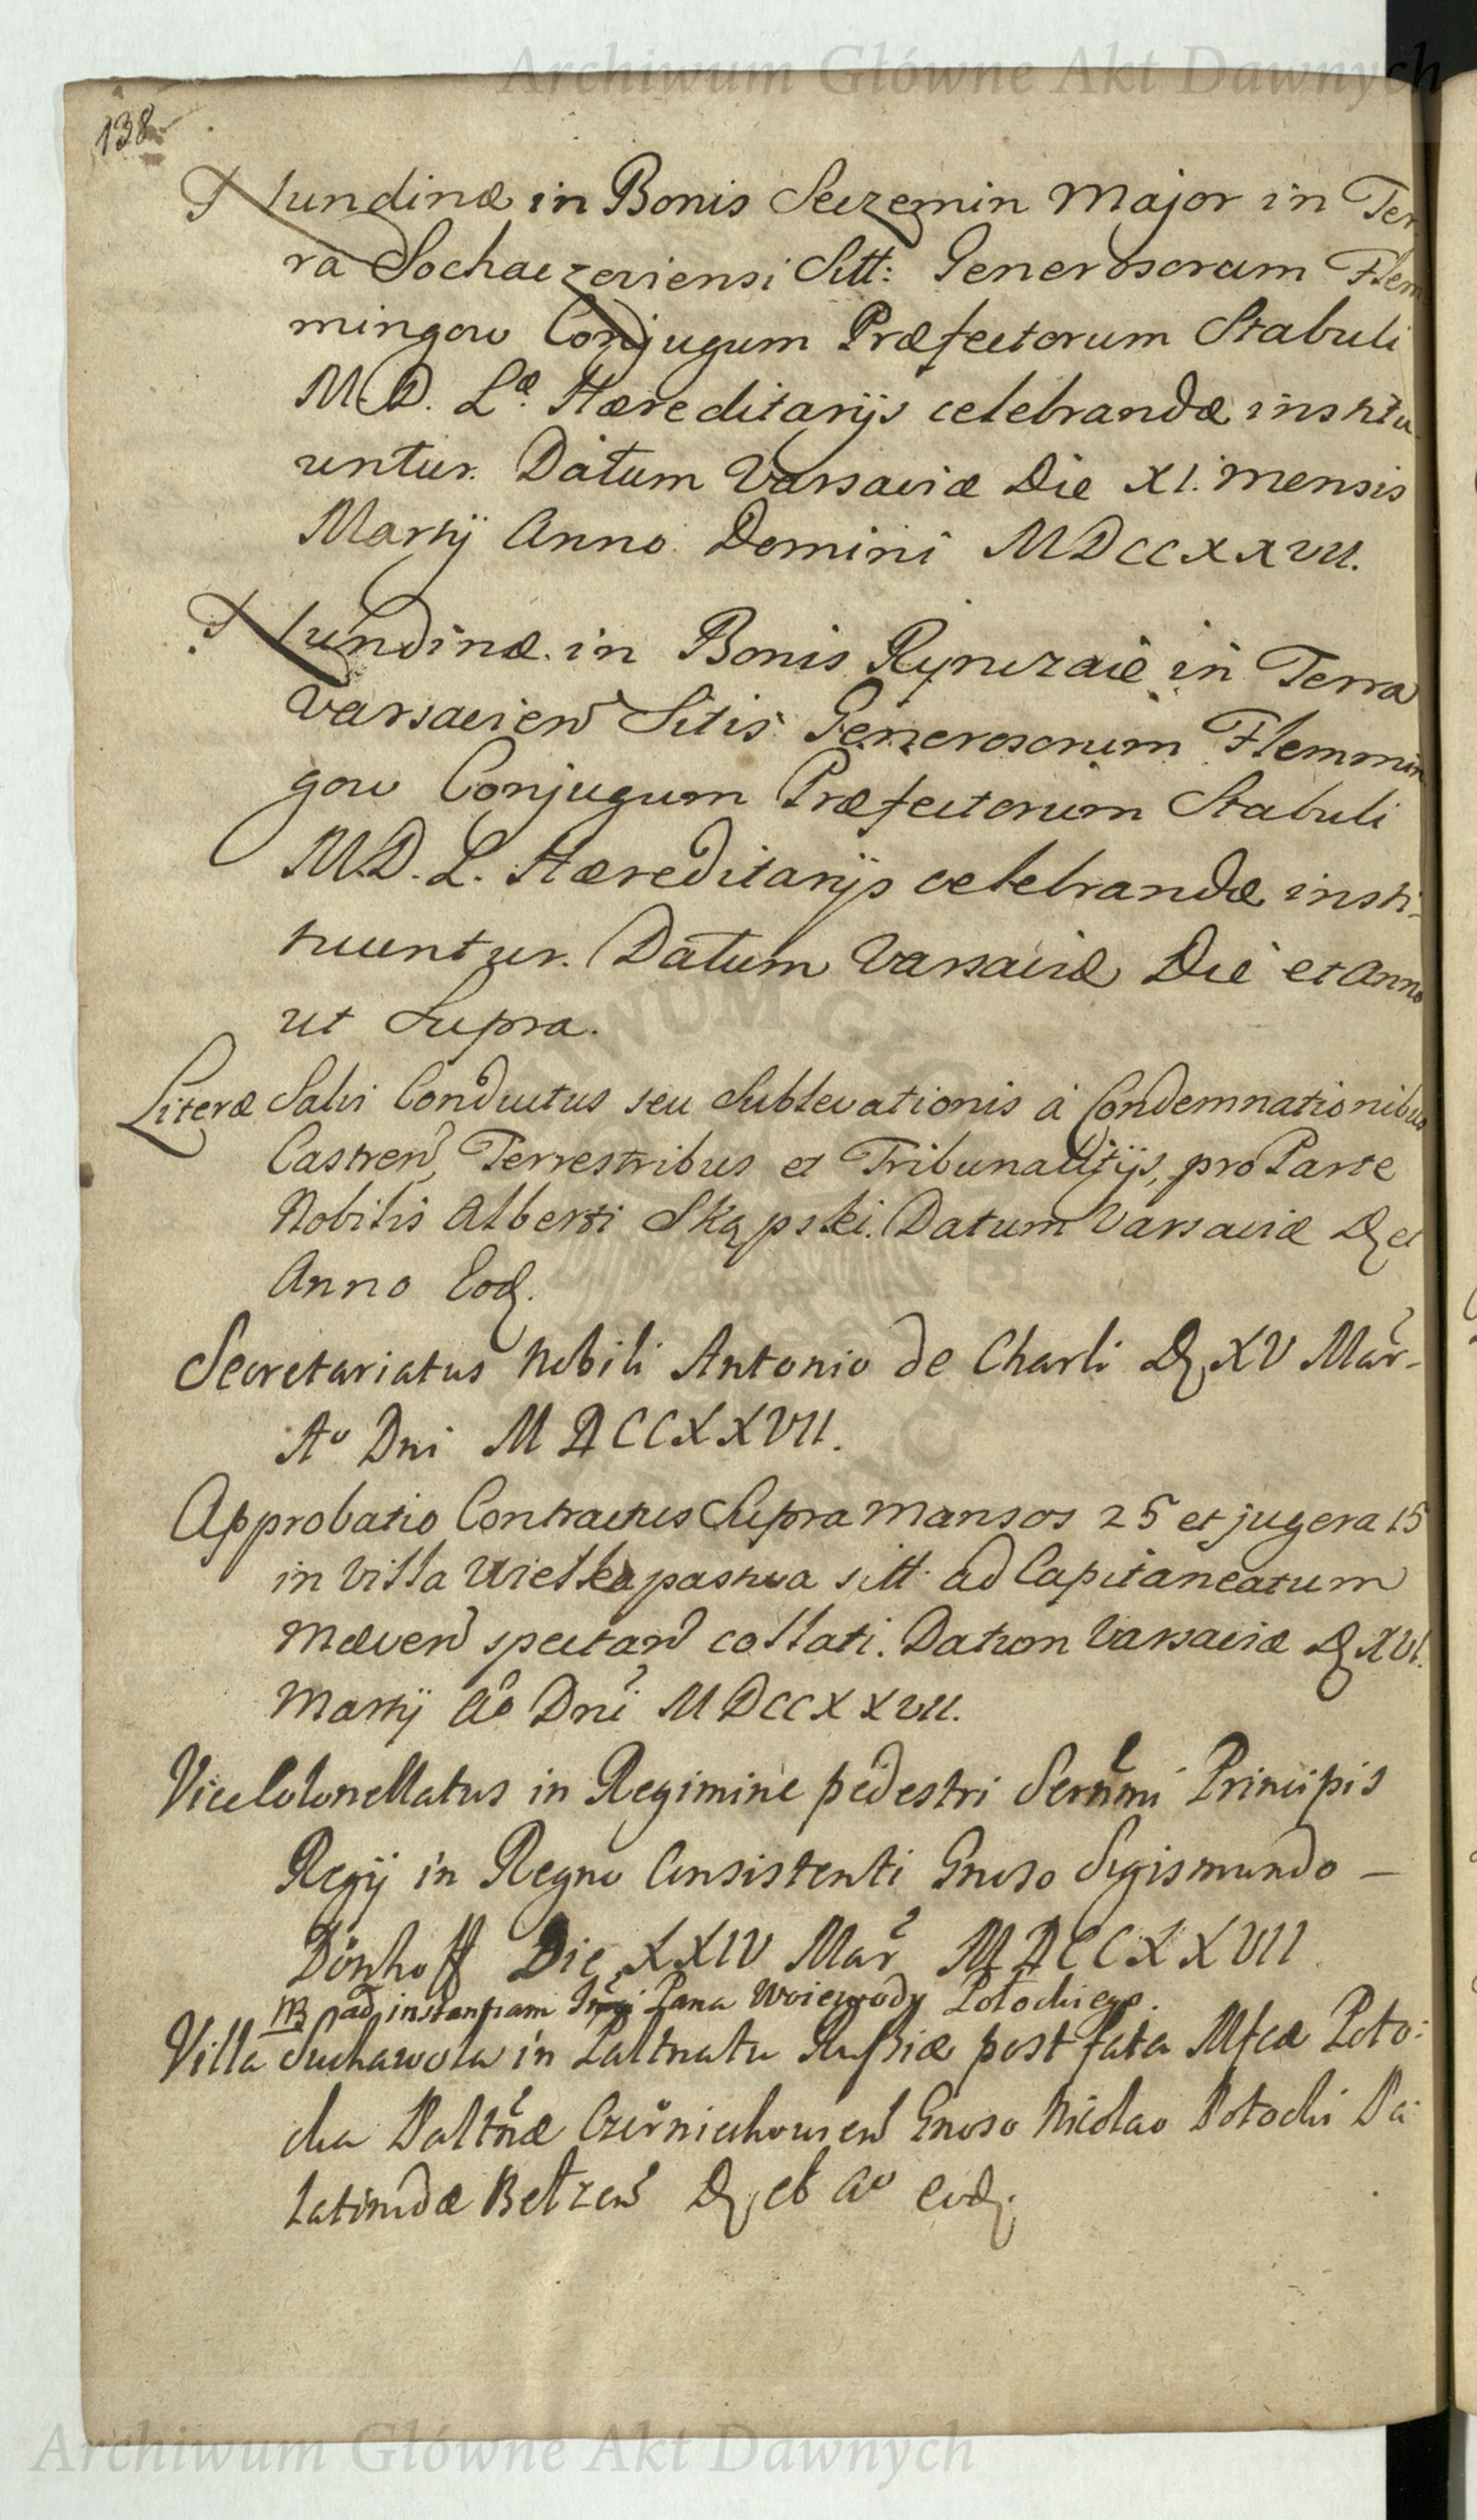 Archiwum Główne Akt Dawnych
138
Nundinæ in Bonis Seczemin Major in Ter
ra Sochaczeviensi Sitt: Generosorum Flem
mingow Conjugum Præfectorum Stabuli
M.D. Læ. Hæreditarijs celebrandæ institu
untur. Datum Varsaviæ Die XI. mensis
Martij Anno Domini MDCCXXVII.
Nundinæ in Bonis Rynczaie in Terra
Varsavien Sitis Generosorum Flemmin
gow Conjugum Præfectorum Stabuli
M.D.L. Hæreditarijs celebrandæ insti-
tuuntur. Datum Varsaviæ Die et Anno
ut Supra.
Literæ Salvi Conductus seu Sublevationis à Condemnationibus
Castren, Terrestribus et Tribunalitijs, pro Parte
Nobilis Alberti Skąpski. Datum Varsaviæ D et
Anno Eod.
Secretariatus Nobili Antonio de Charli D XV Mar-
Ao Dni MDCCXXVII.
Approbatio Contractus Supra mansos 25 et jugera 15
in Villa Wielka pastwa sitt. ad Capitaneatum
Mæven spectan collati. Datum Varsaviæ D XVI.
Martij Ao Dni MDCCXXVII.
ViceColonellatus in Regimine pedestri Serenmi Principis
Regij in Regno Consistenti Gnoso Sigismundo –
Dönhoff Die XXIV Mar MDCCXXVII
NB ad instantiam Pana Woiewody Potockiego.
Villa Suchawola in Paltnatu Russiæ post fata Mfcæ Poto:
cka Paltnæ Czerniechovien Gnoso Nicolao Potocki Pa:
latinidæ Belzen D et Ao eod.
Archiwum Główne Akt Dawnych